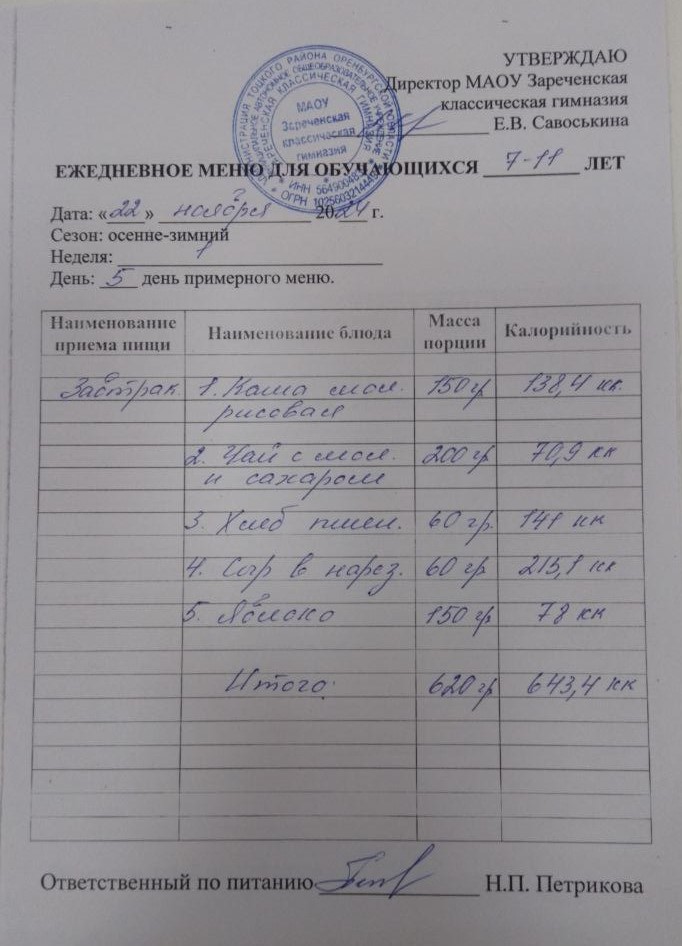 УТВЕРЖДАЮ
Директор МАОУ Зареченская
классическая гимназия
Е.В. Савоськина
МАОУ
Зареченская
классическая
гимназия
ЕЖЕДНЕВНОЕ МЕНЮ ДЛЯ ОБУЧАЮЩИХСЯ 7-11 ЛЕТ
Дата: «22» ноября 2024 г.
Сезон: осенне-зимний
Неделя: 1
День: 5 день примерного меню.
Наименование приема пищи Наименование блюда Масса порции Калорийность
Завтрак 1. Каша мол. 150 гр 138,4 кк.
рисовая
2. Чай с мол. 200 гр 70,9 кк
и сахаром
3. Хлеб пшен. 60 гр. 141 кк
4. Сыр в нарез. 60 гр 215,1 кк
5. Яблоко 150 гр 78 кк
Итого: 620 гр 643,4 кк
Ответственный по питанию Н.П. Петрикова